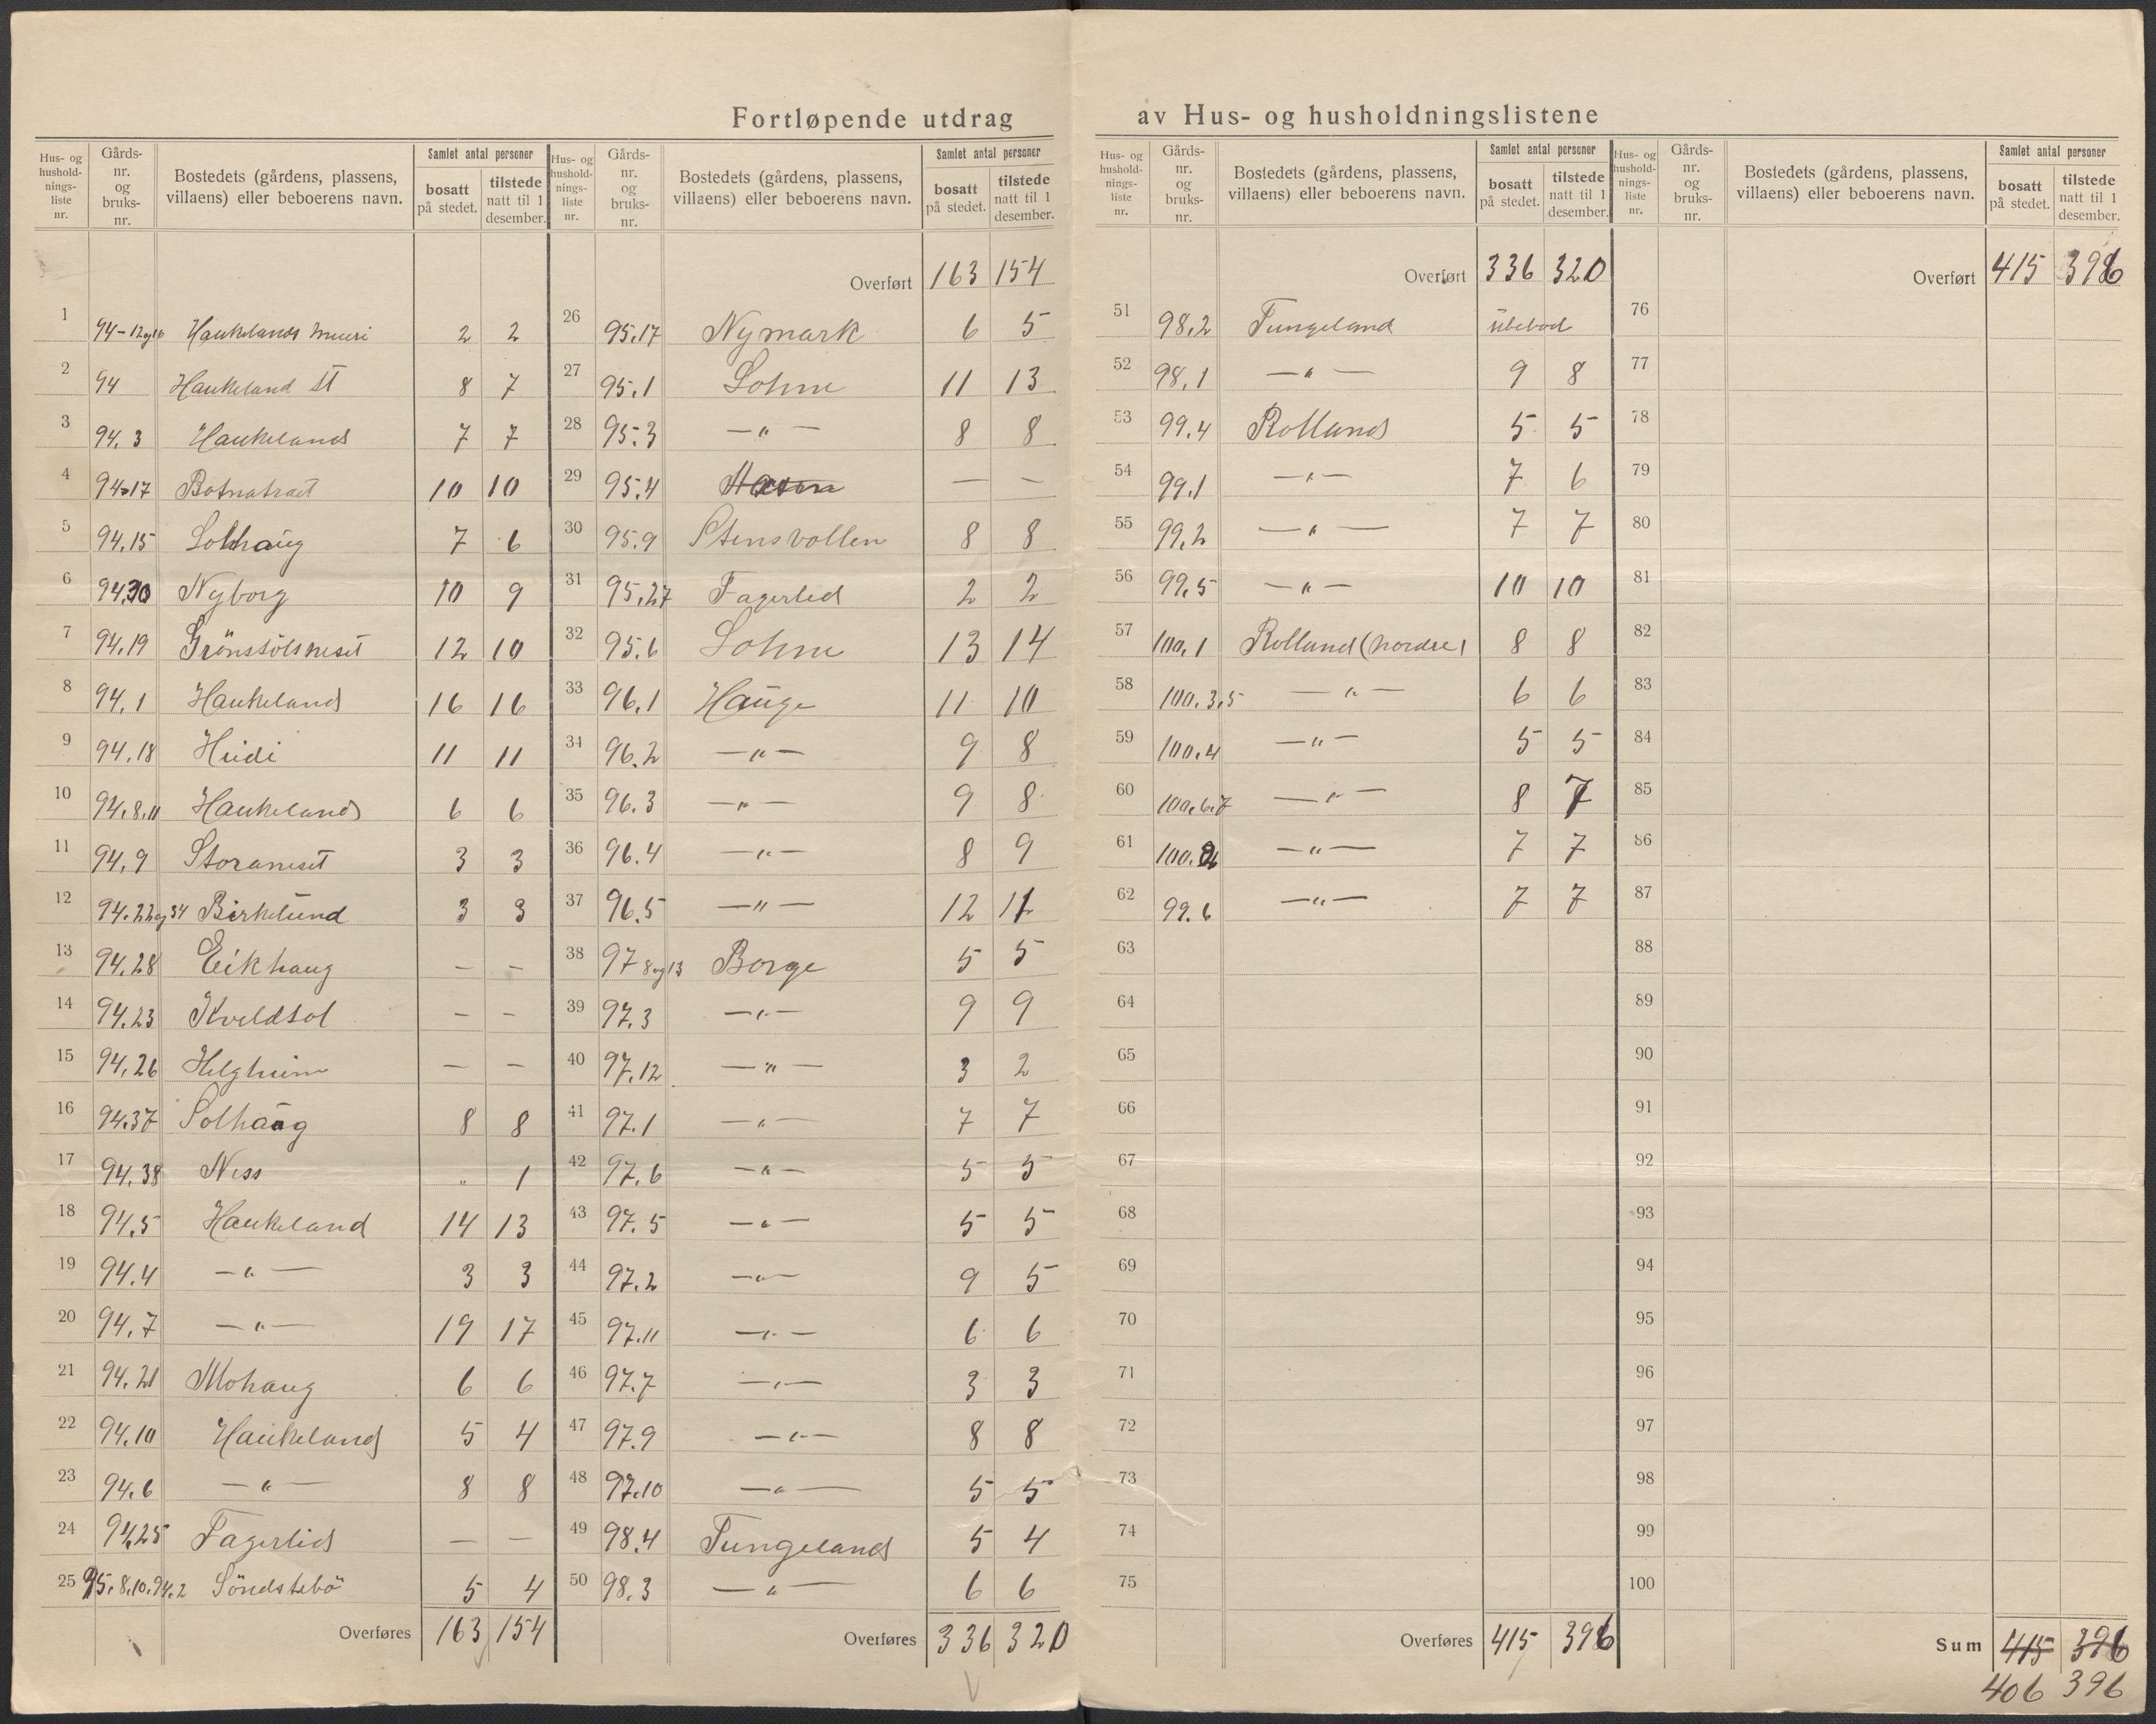 Fortløpende utdrag av Hus- og husholdningslistene
Hus- og hushold-nings-liste nr. Gårds-nr. og bruks-nr. Bostedets (gårdens, plassens, villaens) eller beboerens navn. Samlet antal personer bosatt på stedet. tilstede natt til 1 desember.
1 94-12og16 Haukelands 2 2
2 94 Haukeland St 8 7
3 94.3 Haukeland 7 7
4 94.17 Botnatræet 10 10
5 94.15 Solhaug 7 6
6 94.30 Nyborg 10 9
7 94.19 Grönstölsneset 12 10
8 94.1 Haukeland 16 16
9 94.18 Heidi 11 11
10 94.8.11 Haukeland 6 6
11 94.9 Storaneset 3 3
12 94.22og34 Birkelund 3 3
13 94.28 Eikhaug — —
14 94.23 Kveldsol — —
15 94.26 Helgheim — —
16 94.37 Solhaug 8 8
17 94.38 Ness " 1
18 94.5 Haukeland 14 13
19 94.4 —"— 3 3
20 94.7 —"— 19 17
21 94.21 Mohaug 6 6
22 94.10 Haukeland 5 4
23 94.6 —"— 8 8
24 94.25 Fagerlid — —
25 95.8.10.94.2 Söndstebö 5 4
Overføres 163 154
Hus- og hushold-nings-liste nr. Gårds-nr. og bruks-nr. Bostedets (gårdens, plassens, villaens) eller beboerens navn. Samlet antal personer bosatt på stedet. tilstede natt til 1 desember.
Overført 163 154
26 95.17 Nymark 6 5
27 95.1 Lohne 11 13
28 95.3 —"— 8 8
29 95.4 — —
30 95.9 Stensvollen 8 8
31 95.27 Fagerlid 2 2
32 95.6 Lohne 13 14
33 96.1 Hauge 11 10
34 96.2 —"— 9 8
35 96.3 —"— 9 8
36 96.4 —"— 8 9
37 96.5 —"— 12 11
38 97 8og13 Borge 5 5
39 97.3 —"— 9 9
40 97.12 —"— 3 2
41 97.1 —"— 7 7
42 97.6 —"— 5 5
43 97.5 —"— 5 5
44 97.2 —"— 9 5
45 97.11 —"— 6 6
46 97.7 —"— 3 3
47 97.9 —"— 8 8
48 97.10 —"— 5 5
49 98.4 Tungeland 5 4
50 98.3 —"— 6 6
Overføres 336 320
Hus- og hushold-nings-liste nr. Gårds-nr. og bruks-nr. Bostedets (gårdens, plassens, villaens) eller beboerens navn. Samlet antal personer bosatt på stedet. tilstede natt til 1 desember.
Overført 336 320
51 98.2 Tungeland ubebod
52 98.1 —"— 9 8
53 99.4 Rolland 5 5
54 99.1 —"— 7 6
55 99.2 —"— 7 7
56 99.5 —"— 10 10
57 100.1 Rolland (nordre) 8 8
58 100.3,5 —"— 6 6
59 100.4 —"— 5 5
60 100.6.7 —"— 8 7
61 —"— 7 7
62 99.6 —"— 7 7
63
64
65
66
67
68
69
70
71
72
73
74
75
Overføres 415 396
Hus- og hushold-nings-liste nr. Gårds-nr. og bruks-nr. Bostedets (gårdens, plassens, villaens) eller beboerens navn. Samlet antal personer bosatt på stedet. tilstede natt til 1 desember.
Overført 415 396
76
77
78
79
80
81
82
83
84
85
86
87
88
89
90
91
92
93
94
95
96
97
98
99
100
Sum 415 396
406 396